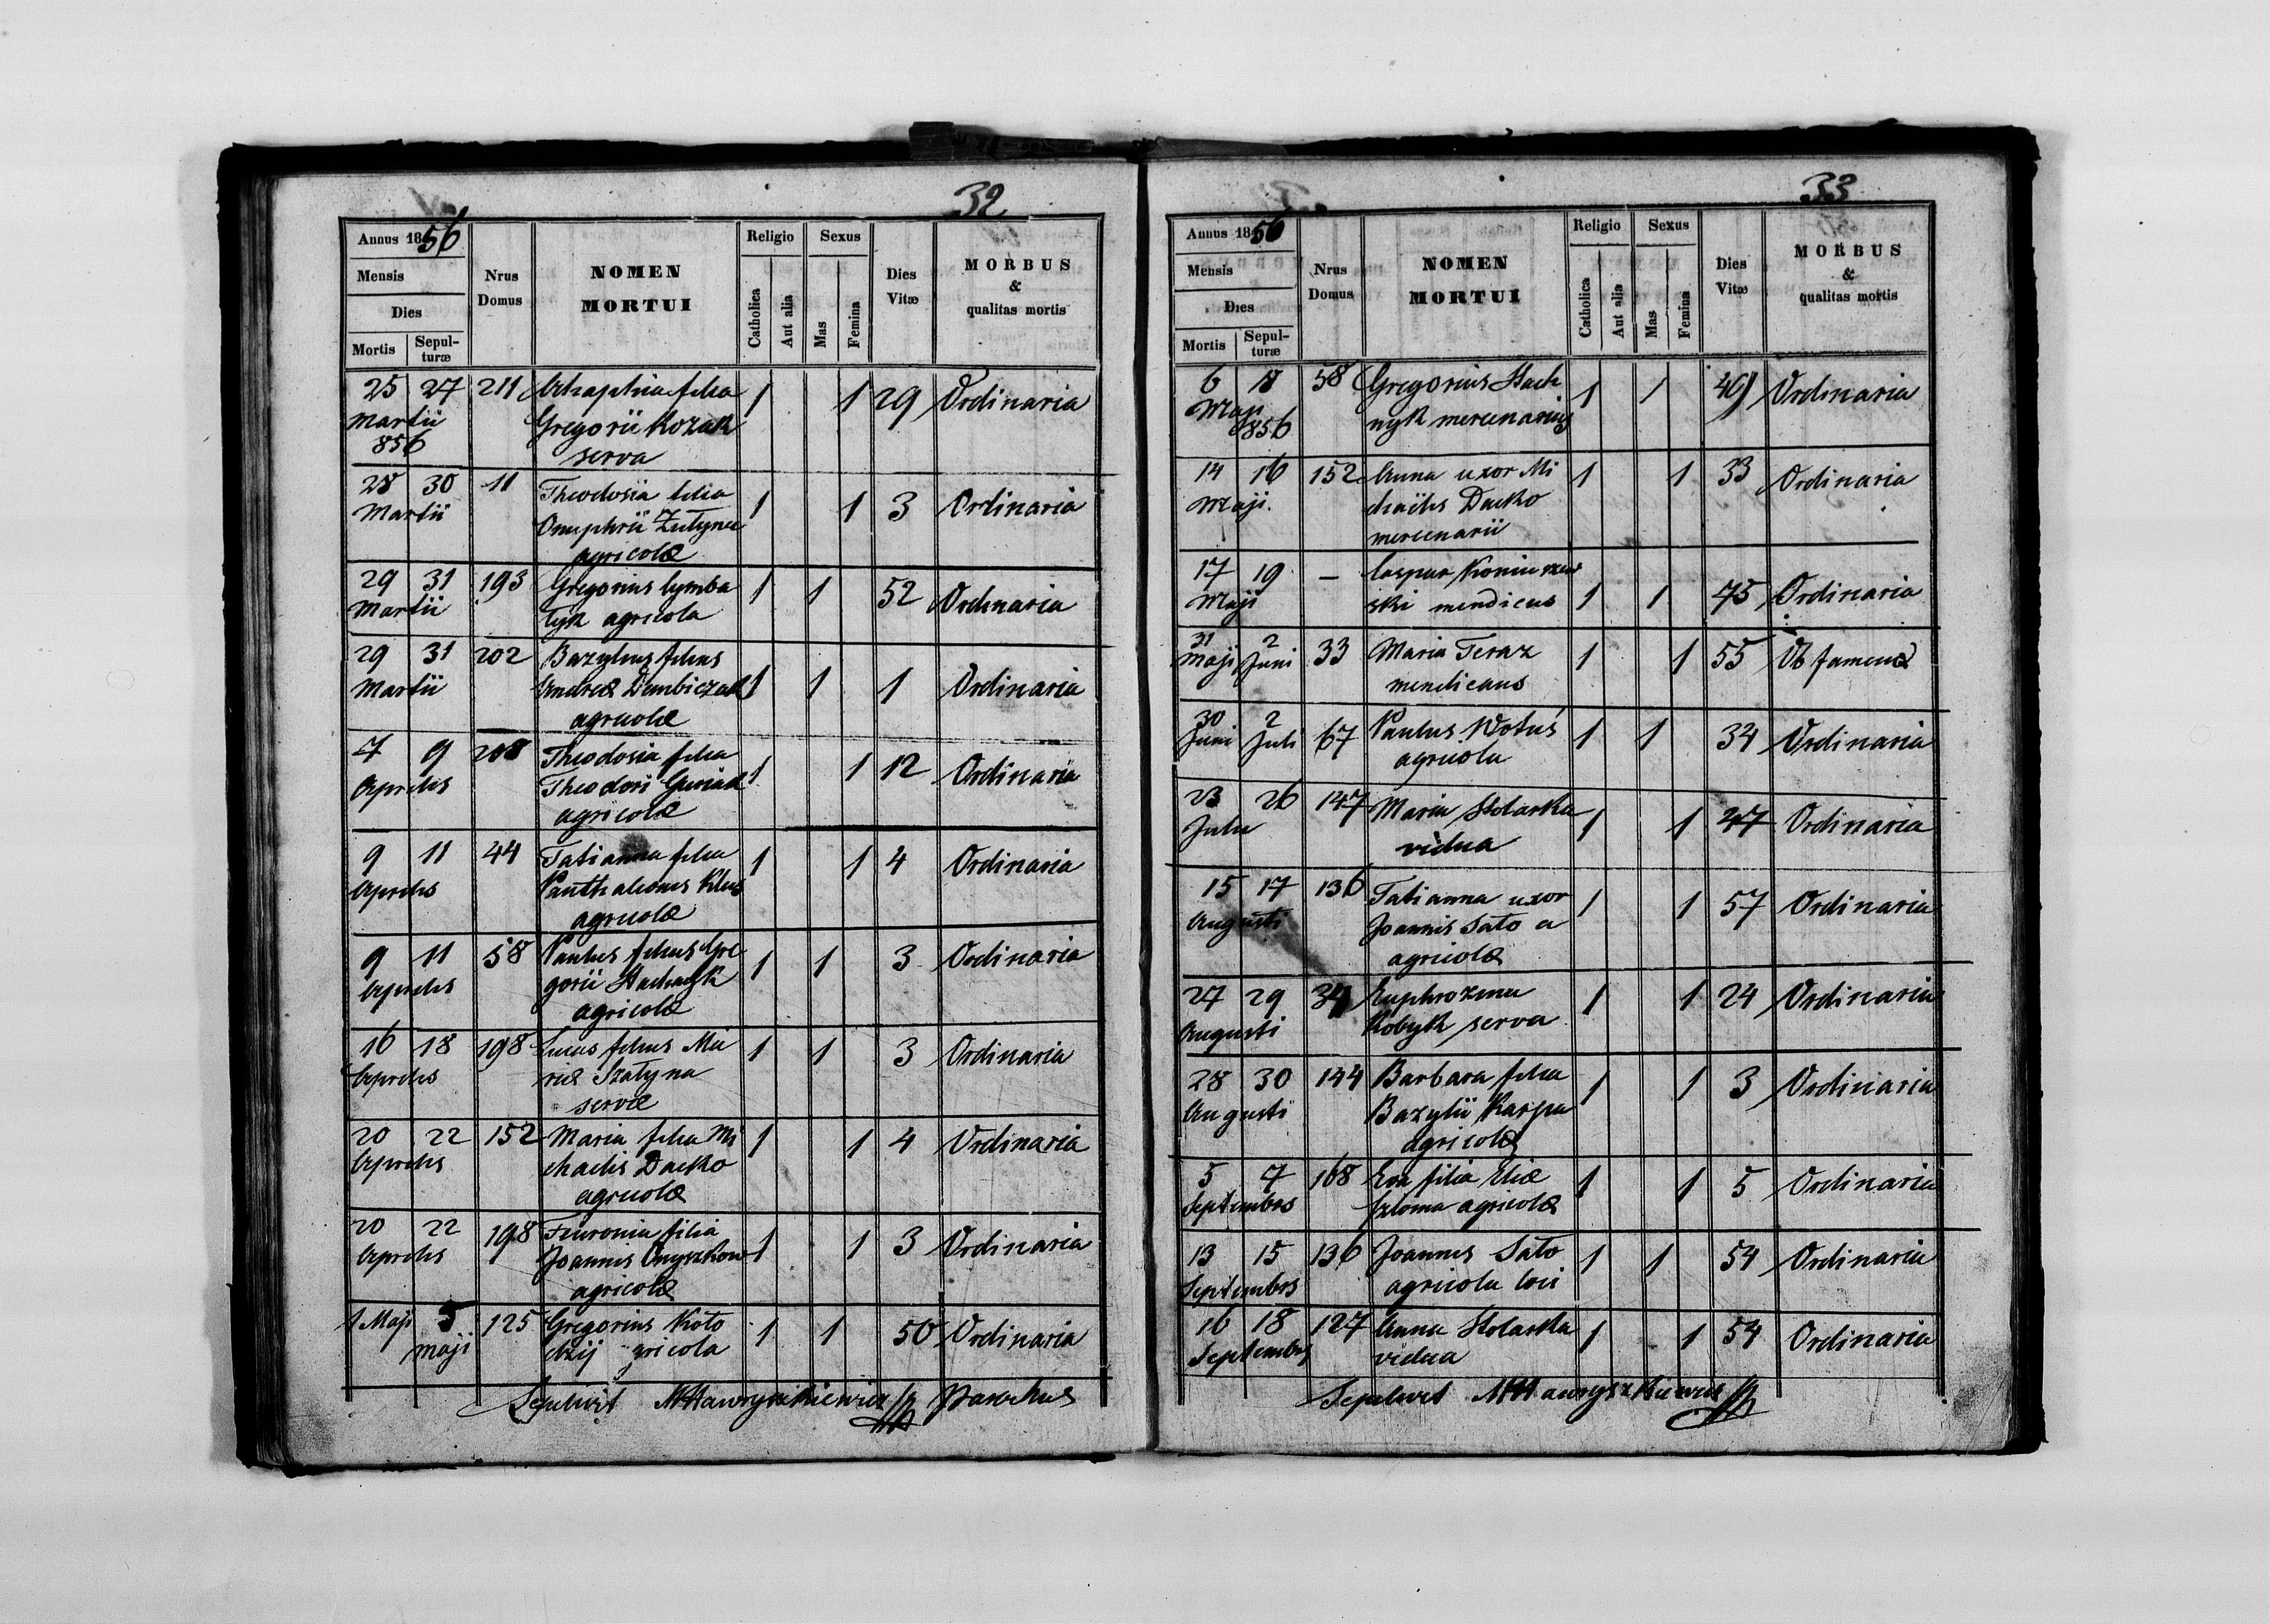 32
Annus 1856
Mensis
Dies
Mortis
Sepulturæ
Nrus Domus
NOMEN MORTUI
Religio
Catholica
Aut alia
Sexus
Mas
Femina
Dies Vitæ
MORBUS & qualitas mortis
25 27 211 Ahaphia filia 1 1 29 Ordinaria
Martii Gregorii Kozak
856 serva
28 30 11 Theodosia filia 1 1 3 Ordinaria
Martii Onuphrii
agricolæ
29 31 193 Gregorius Cymba 1 1 52 Ordinaria
Martii lyk agricola
29 31 202 Bazylius filius 1 1 1 Ordinaria
Martii Andreæ Dembiczak
agricolæ
7 9 208 Theodosia filia 1 1 12 Ordinaria
Aprilis Theodori Guriak
agricolæ
9 11 44 Tatianna filia 1 1 4 Ordinaria
Aprilis Panthaleonis Klus
agricolæ
9 11 58 Paulus filius Gre 1 1 3 Ordinaria
Aprilis gorii Stachnyk
agricolæ
16 18 198 Lucas filius Ma 1 1 3 Ordinaria
Aprilis riæ Szatyna
servæ
20 22 152 Maria filia Mi 1 1 4 Ordinaria
Aprilis chaelis Dacko
agricolæ
20 22 198 Fewronia filia 1 1 3 Ordinaria
Aprilis Joannis Onyszkow
agricolæ
1 Maji 5 125 Gregorius Koło 1 1 50 Ordinaria
maji dzij gricola
Sepelivit MHawryszkiewicz Parochus
33
Annus 1856
Mensis
Dies
Mortis
Sepulturæ
Nrus Domus
NOMEN MORTUI
Religio
Catholica
Aut alia
Sexus
Mas
Femina
Dies Vitæ
MORBUS & qualitas mortis
6 8 58 Gregorius Stach 1 1 49 Ordinaria
Maji 856 nyk mercenarius
14 16 152 Anna uxor Mi 1 1 33 Ordinaria
Maji. chaëlis Dacko
mercenarii
17 19 — Caspar Koniuszew
Maji ski mendicus 1 1 75 Ordinaria
31 2 33 Maria Teraz 1 1 55 Ob famem
Maji Juni mendicans
30 2 67 Paulus Wotuś 1 1 34 Ordinaria
Juni Juli agricola
23 26 147 Maria Stolarka 1 1 47 Ordinaria
Julii vidua
15 17 136 Tatianna uxor 1 1 57 Ordinaria
Augusti Joannis Sato a
agricolæ
27 29 34 Euphrozina 1 1 24 Ordinaria
Augusti Kobyk serva
28 30 144 Barbara filia 1 1 3 Ordinaria
Augusti Bazylii Karpa
agricolæ
5 7 168 Eva filia Eliæ 1 1 5 Ordinaria
Septembris Szloma agricolæ
13 15 136 Joannes Sato 1 1 54 Ordinaria
Septembris agricola loci
16 18 127 Anna Stolarka 1 1 54 Ordinaria
Septembris vidua
Sepelivit MHawryszkiewicz